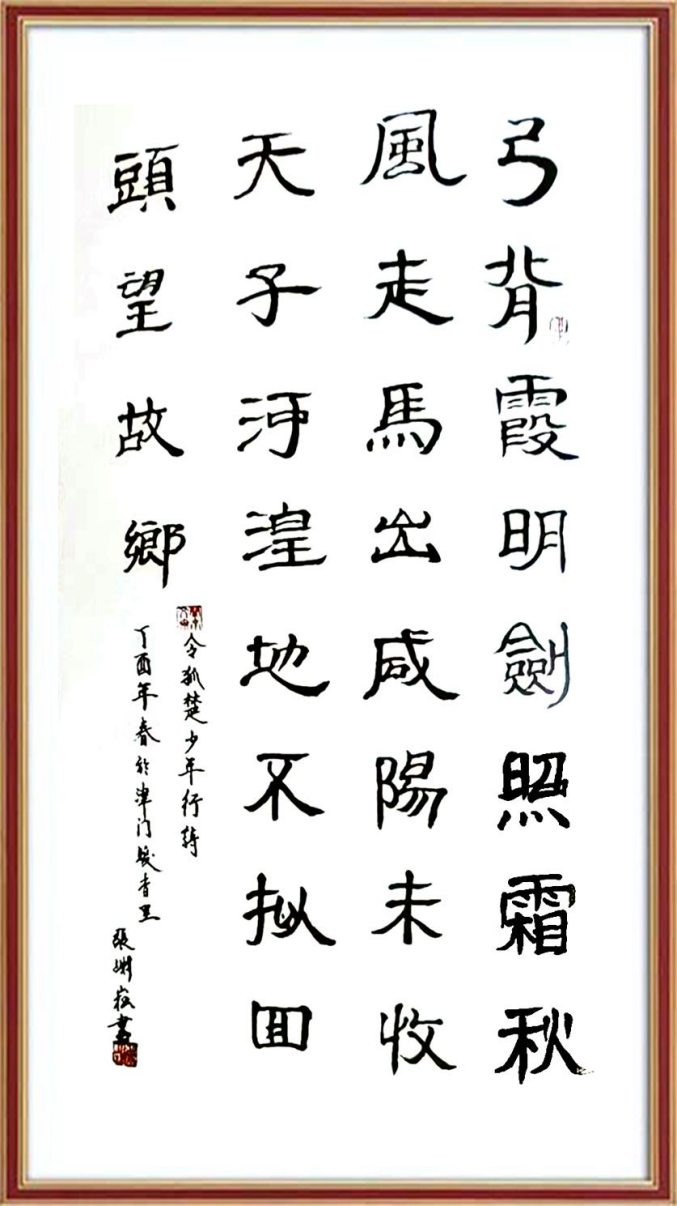 弓背霞明劍照霜秋
風走馬出咸陽未收
天子河湟地不擬回
頭望故鄉
令狐楚少年行詩
丁酉年春於津门
張
書